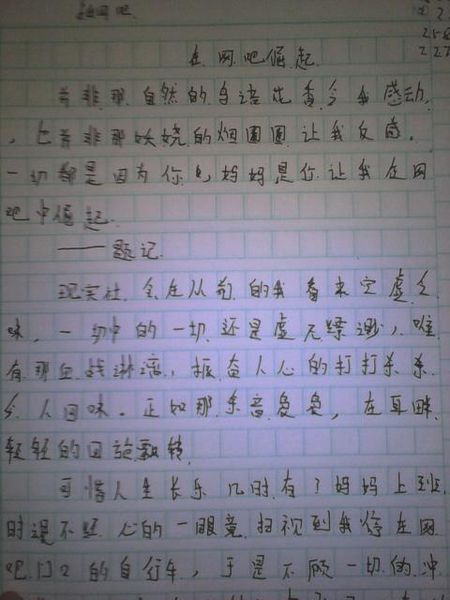 在网吧崛起
若非那自然的鸟语花香令我感动,
，也若非那妖娆的烟圈圈让我反感。
一切都是因为你么妈妈是你让我在网
吧中崛起.
——题记.
现实社会在从前的我看来空虚乏
味，一切中的一切还是虚无缥渺，唯
有那血战淋漓，振奋人心的打打杀杀
令人回味。正如那乐音袅袅，在耳畔
轻轻的回旋飘转
可惜人生长乐几时有？妈妈上班
时漫不经心的一眼竟扫视到我停在网
吧门口的自行车，于是不顾一切的冲